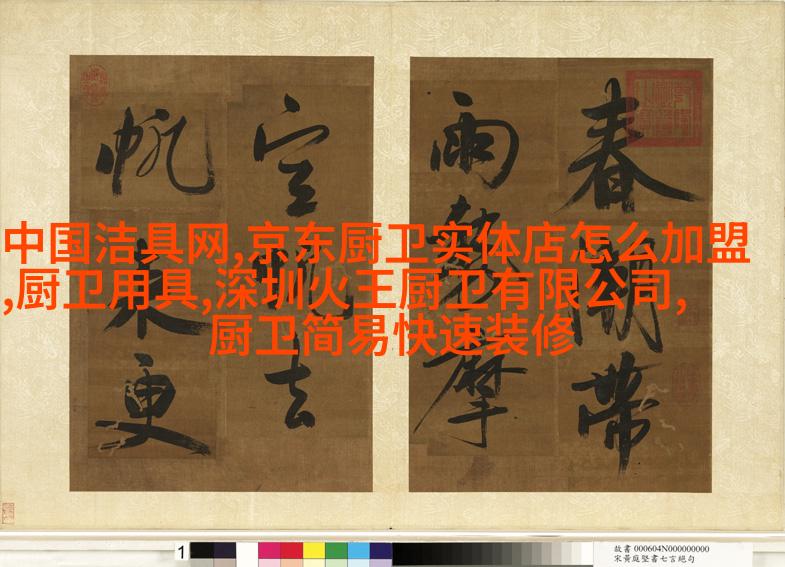 中国洁具网,京东厨卫实体店怎么加盟
,厨卫用具,深圳火王厨卫有限公司,
厨卫简易快速装修
春湖帶
雨勢摩
空帆去
帆來更
1
故書 000604N000000000
宋黃庭堅書七言絕句